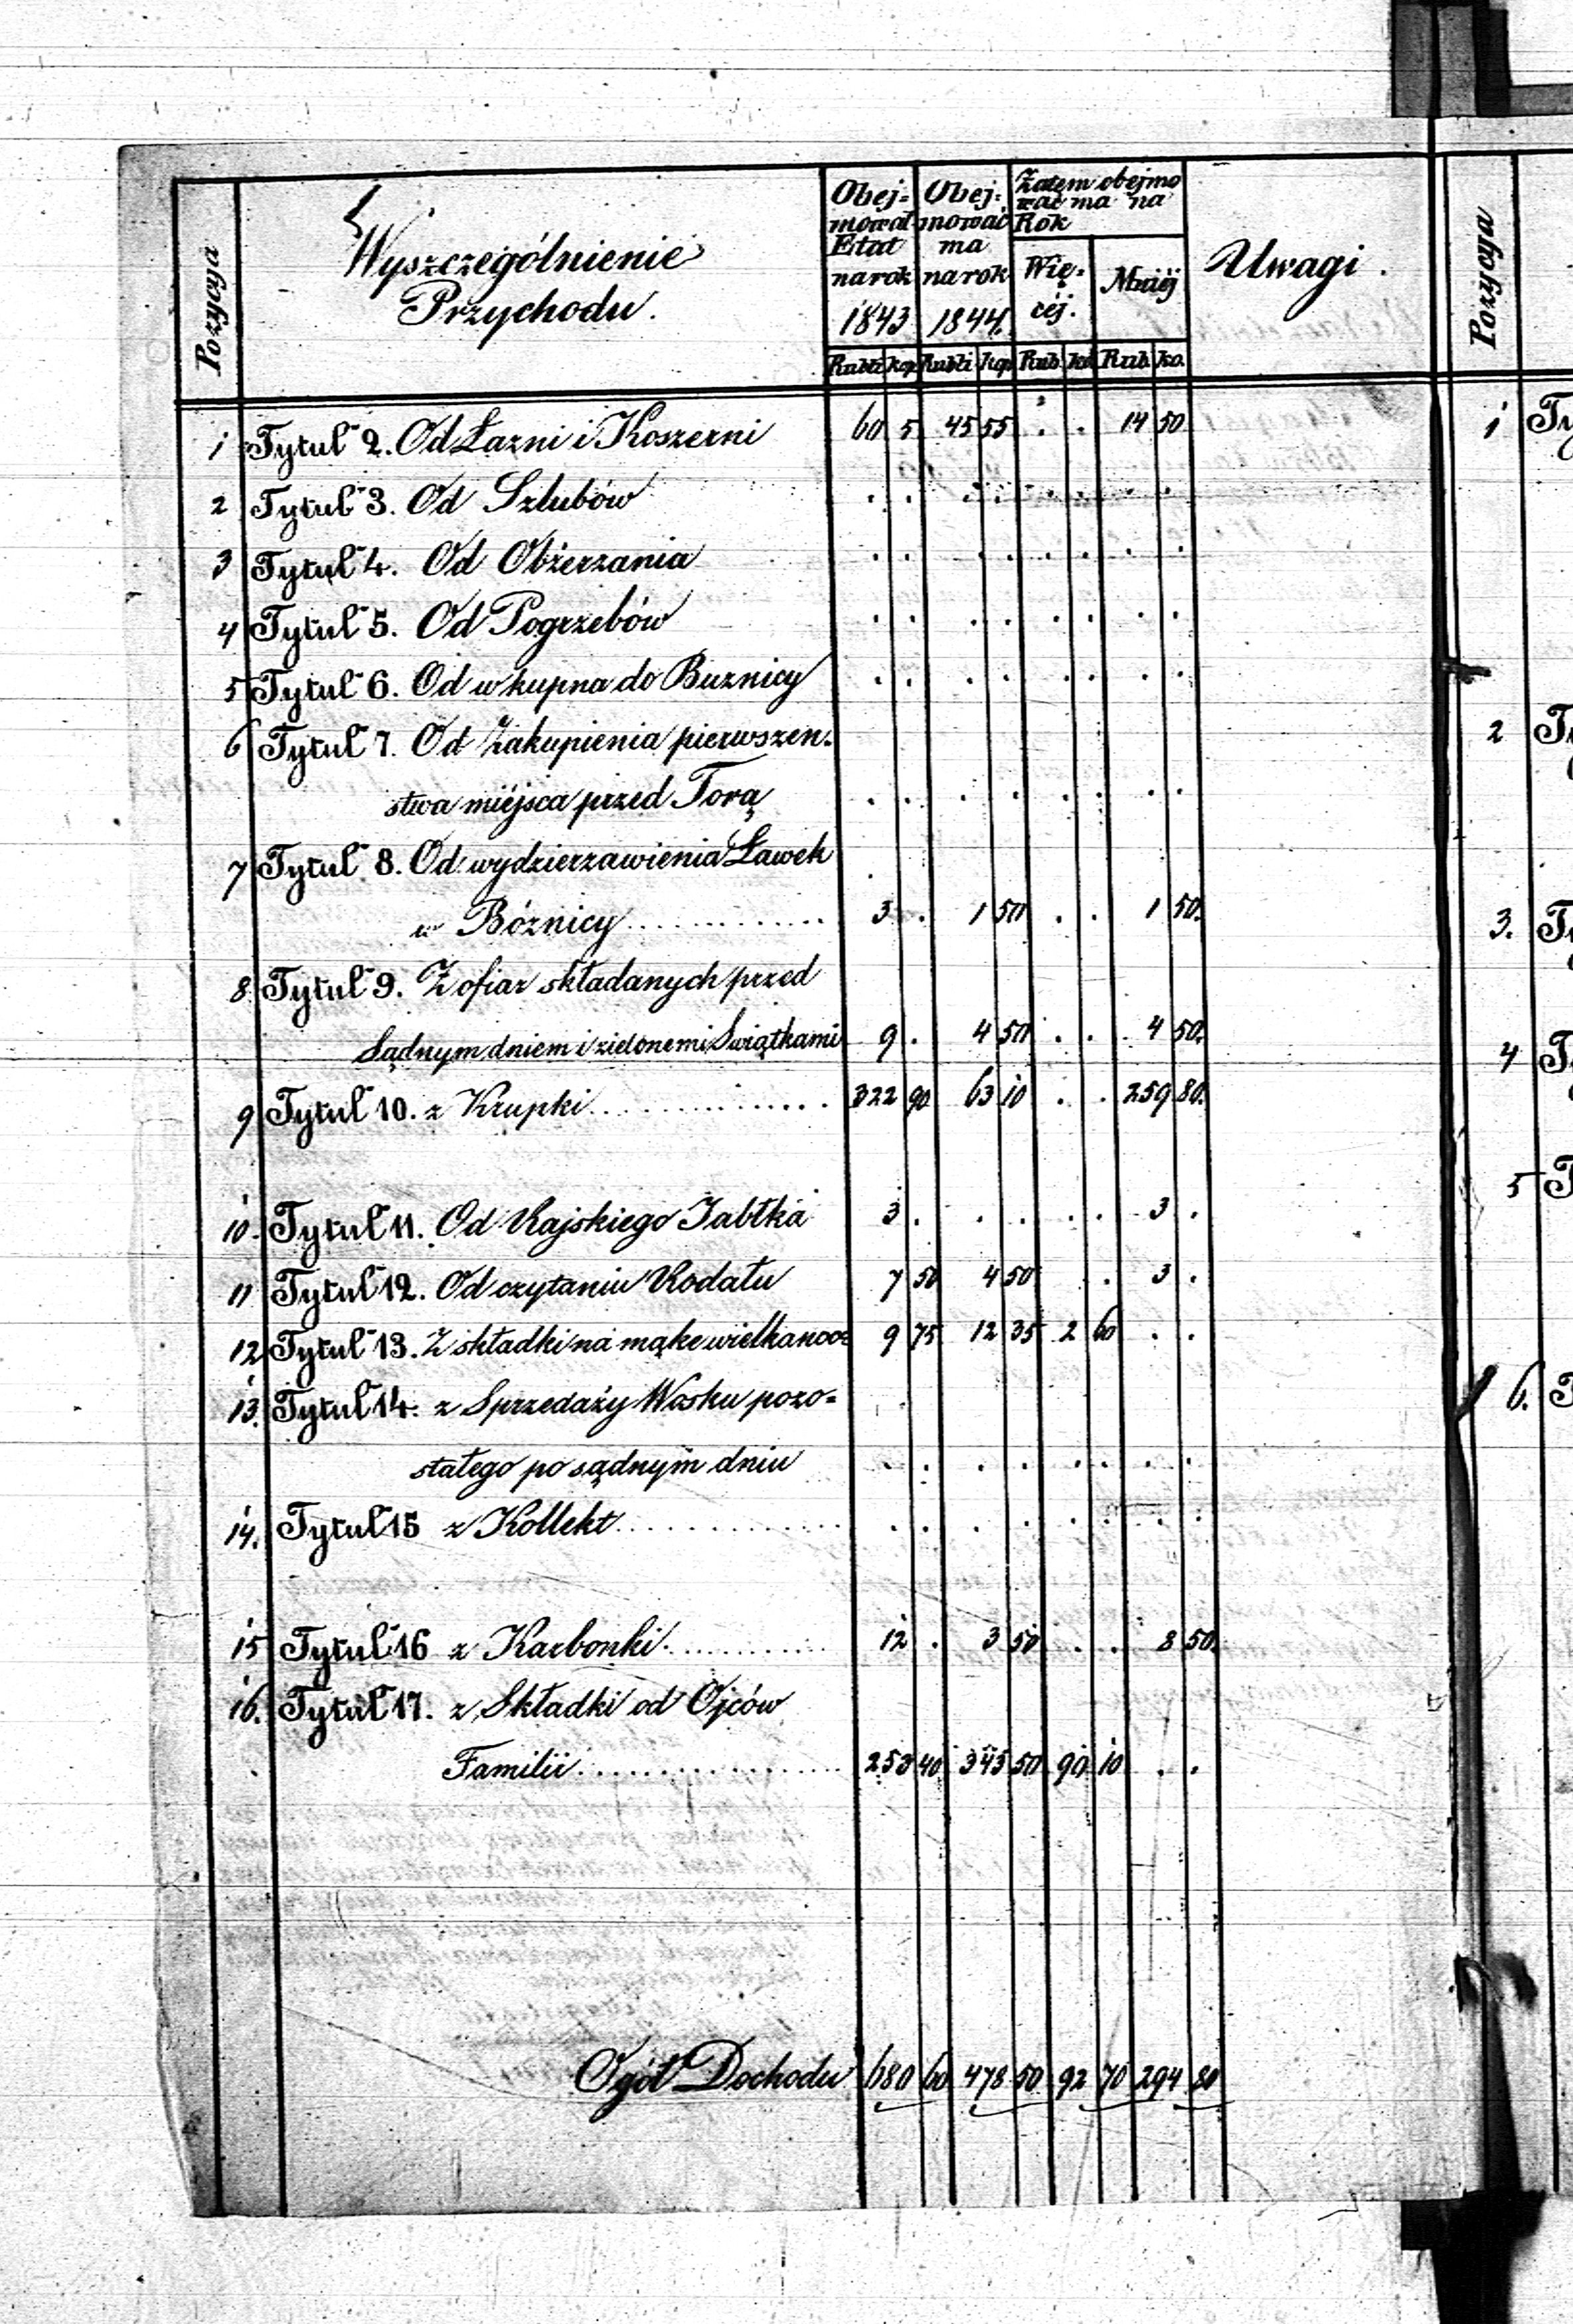 Pozycya
Wyszczególnienie
Przychodu.
Obej-
mował
Etat
na rok
1843
Obej-
mować
ma
na rok
1844.
Zatem obejmo
wać ma na
Rok
Wię-
céj.
Mniéj
Uwagi.
Rubli kop Rubli kop Rub. ko. Rub. ko.
1 Tytul 2. Od Łazni i Koszerni 60 5 45 55 . . 14 50
2 Tytul 3. Od Szlubów . . . . . . . .
3 Tytul 4. Od Obżerzania . . . . . . . .
4 Tytul 5. Od Pogrzebów . . . . . . . .
5 Tytul 6. Od wkupna do Buznicy . . . . . . . .
6 Tytul 7. Od Zakupienia pierwszen-
stwa miéjsca przed Torą . . . . . . . .
7 Tytul 8. Od wydzierzawienia Ławek
w Bóżnicy 3 . 1 50 . . 1 50.
8 Tytul 9. Z ofiar składanych przed
Sądnym dniem i zielonemi Swiątkami 9 . 4 50 . . 4 50.
9 Tytul 10. z Krupki 322 90 63 10 . . 259 80.
10. Tytul 11. Od Rajskiego Jabłka 3 . . . . . 3 .
11 Tytul 12. Od czytaniu Rodału 7 50 4 50 . 3 .
12 Tytul 13. Z składki na mąke wielkanoc- 9 75 12 35 2 60 . .
13. Tytul 14. z Sprzedaży Wosku pozo-
stałego po sądnym dniu . . . . . . . .
14. Tytul 15 z Kollekt . . . . . . . .
15 Tytul 16 z Karbonki 12 . 3 50 . . 8 50.
16. Tytul 17. z Składki od Ojców
Familii 253 40 343 50 90 10 . .
Ogół Dochodu 680 60 478 50 92 70 294 80
Pozycya
1 Ty
2 T
3. T
4 T
5 T
6. T